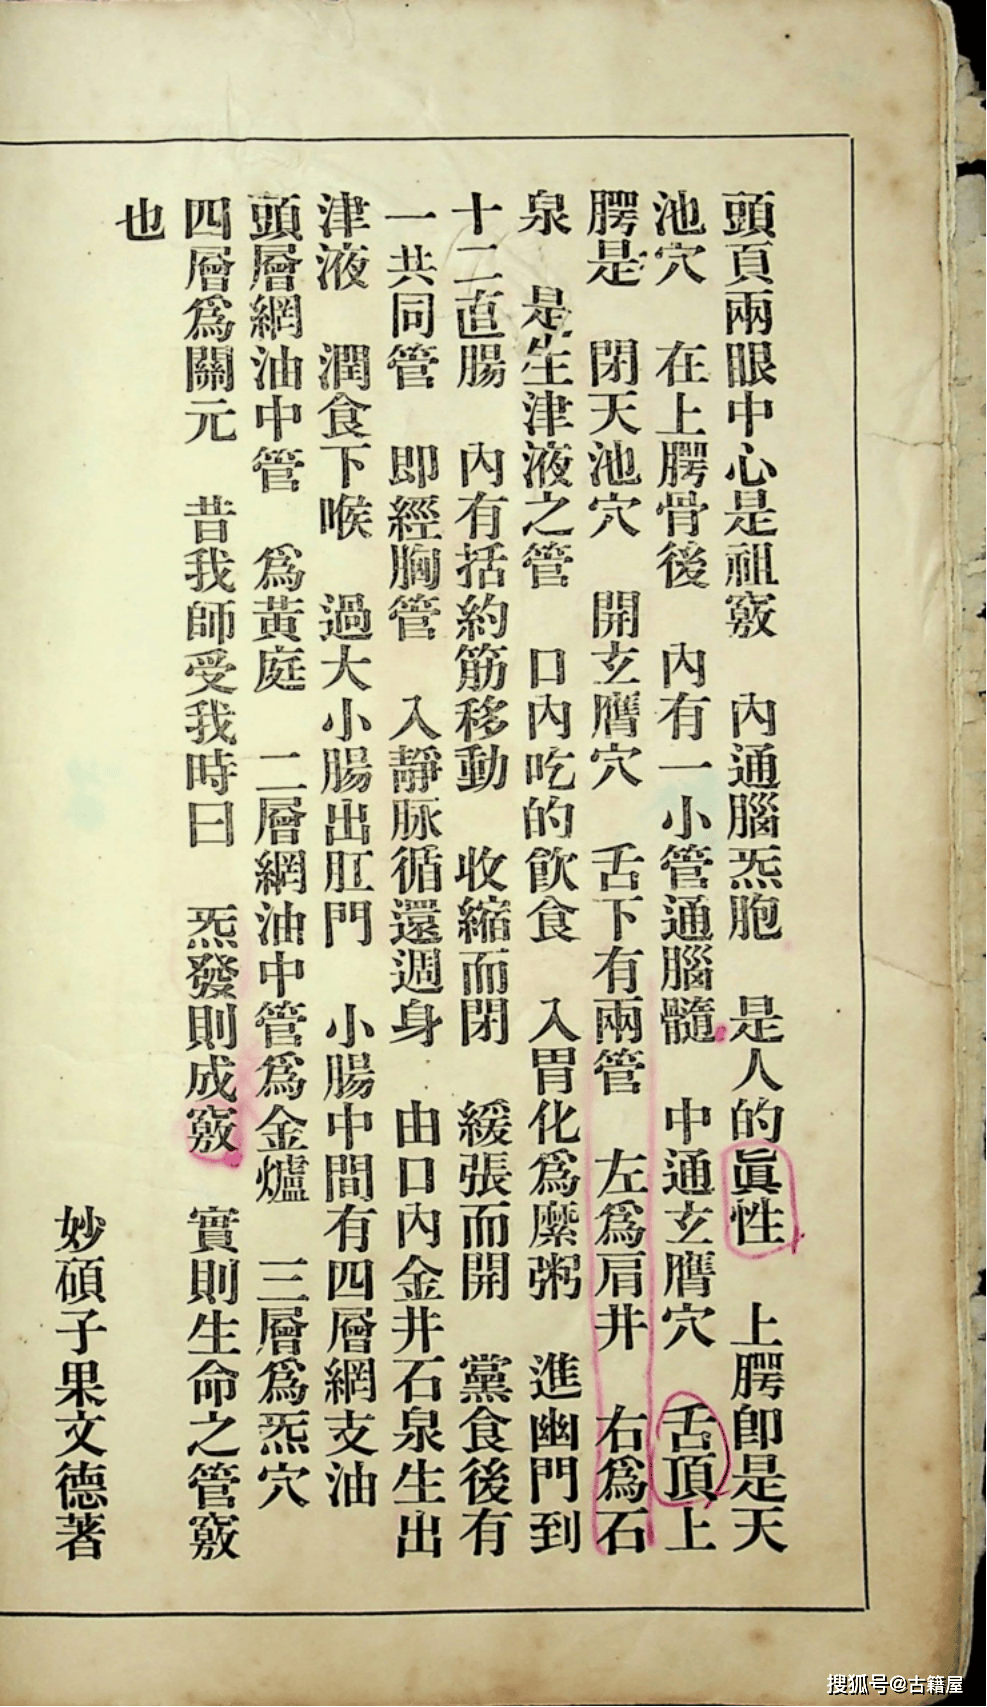 頭頁兩眼中心是祖竅　內通腦炁胞　是人的眞性　上腭卽是天
池穴　在上腭骨後　內有一小管通腦髓　中通玄膺穴　舌頂上
腭是　閉天池穴　開玄膺穴　舌下有兩管　左爲肩井　右爲石
泉　是生津液之管　口內吃的飮食　入胃化爲糜粥　進幽門到
十二直腸　內有括約筋移動　收縮而閉　緩張而開　黨食後有
一共同管　即經胸管　入靜脉循還週身　由口內金井石泉生出
津液　潤食下喉　過大小腸出肛門　小腸中間有四層網支油
頭層網油中管　爲黃庭　二層網油中管爲金爐　三層爲炁穴
四層爲關元　昔我師受我時曰　炁發則成竅　實則生命之管竅
也
妙碩子果文德著
搜狐号@古籍屋